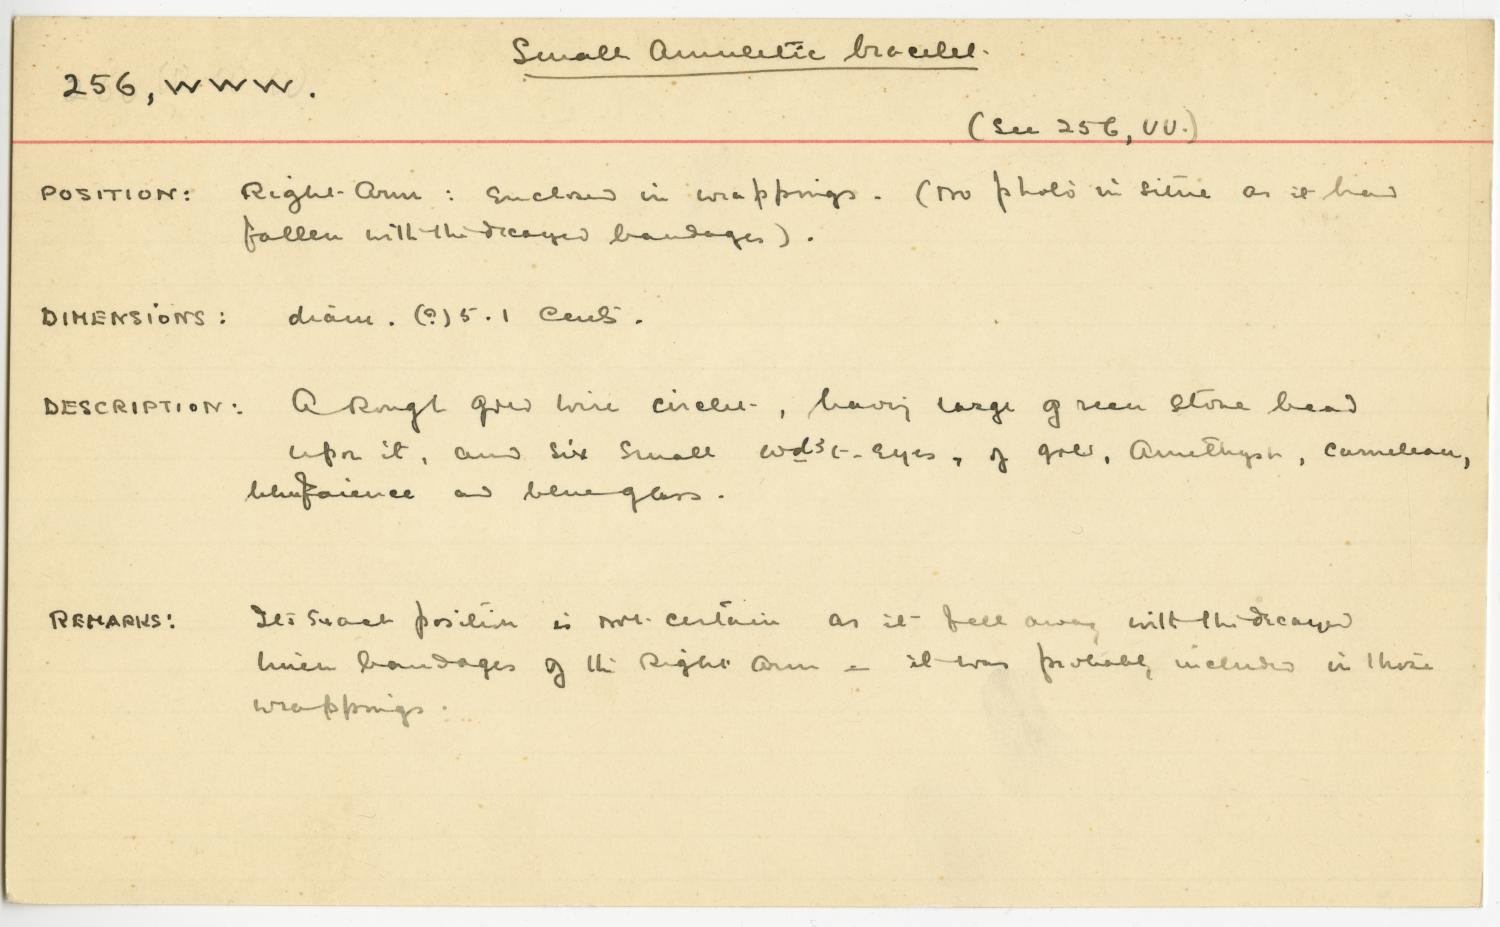 Small Amuletic bracelet.
256, WWW.
(See 256, UU.)
POSITION: Right Arm : Enclosed in wrappings. (No photo in situe as it had
fallen with the decayed bandages).
DIMENSIONS: diam. (?) 5.1 Cents.
DESCRIPTION: A Rough gold wire circlet, having large green stone bead
upon it, and six small wd3t-eyes, of gold, Amethyst, Carnelean,
blue faience and blue glass.
REMARKS: Its exact position is not certain as it fell away with the decayed
linen bandages of the Right Arm - it was probably included in those
wrappings.